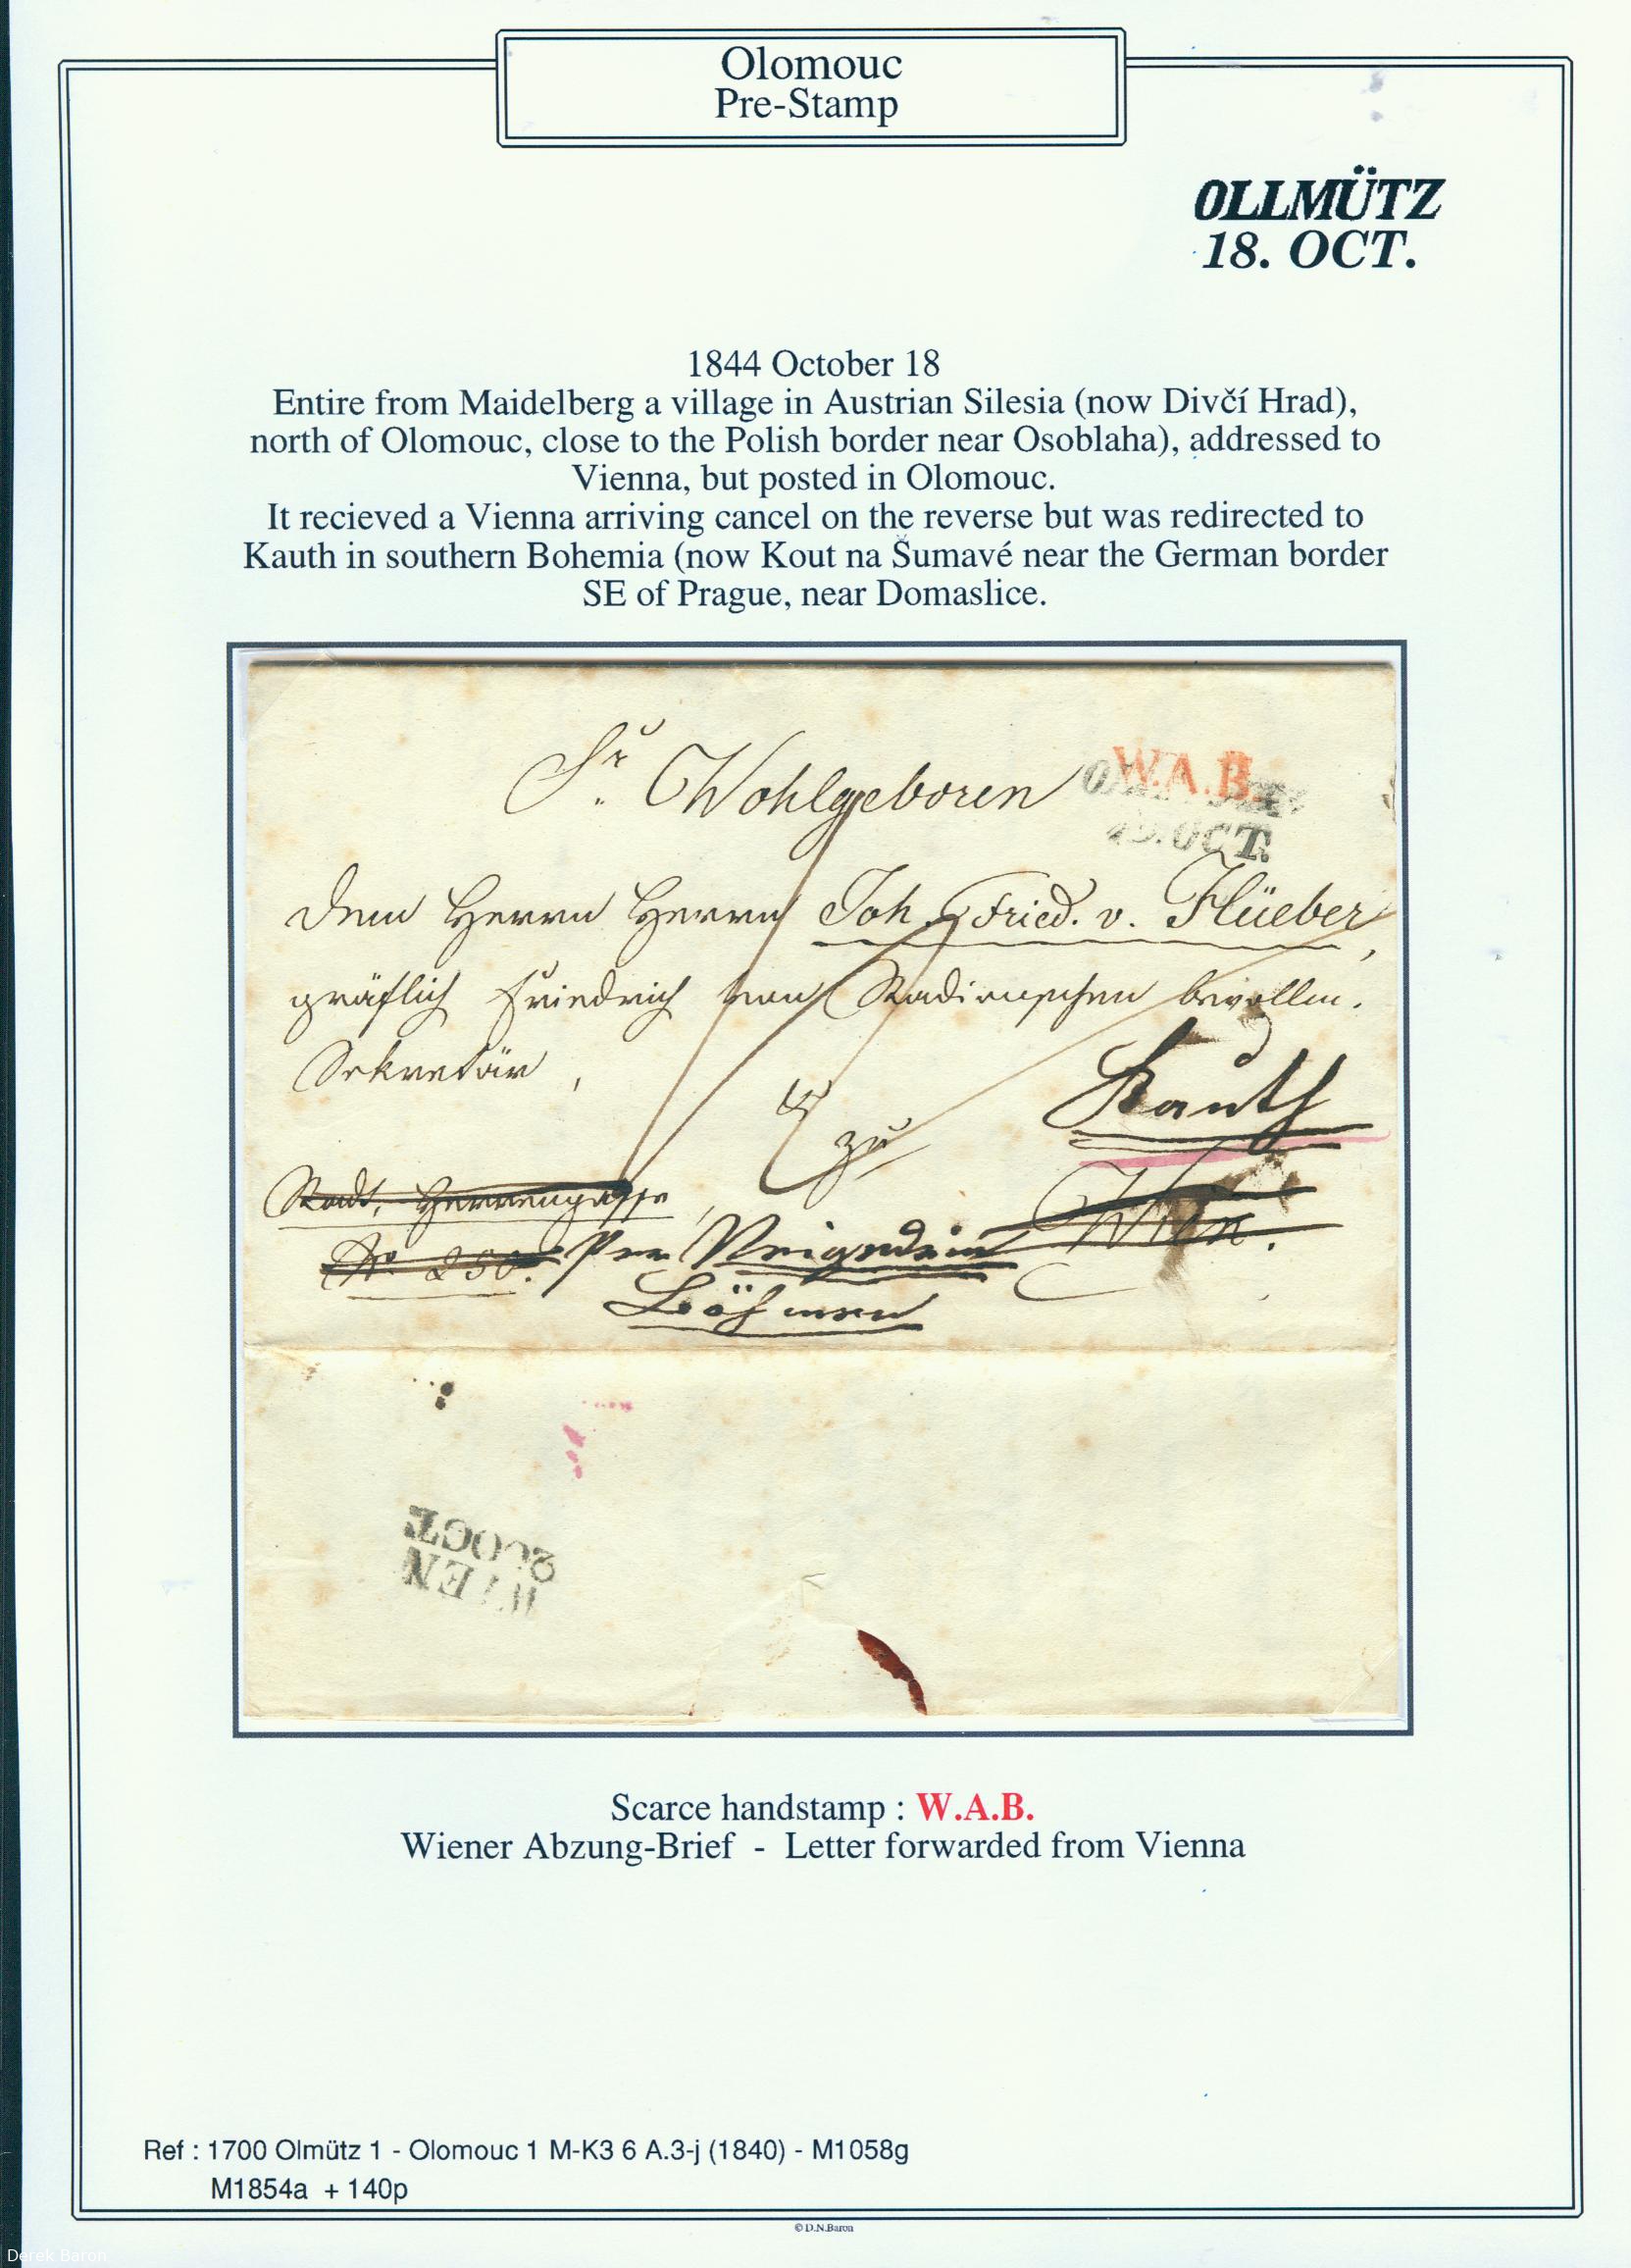 Olomouc
Pre-Stamp
OLLMÜTZ
18. OCT.
1844 October 18
Entire from Maidelberg a village in Austrian Silesia (now Divčí Hrad),
north of Olomouc, close to the Polish border near Osoblaha), addressed to
Vienna, but posted in Olomouc.
It recieved a Vienna arriving cancel on the reverse but was redirected to
Kauth in southern Bohemia (now Kout na Šumavé near the German border
SE of Prague, near Domaslice.
Sr. Wohlgeboren
W.A.B.
OCT.
dem Herrn Herrn Joh. Fried. v. Flüeber,
gräflich Friedrich von Stadionschen bevollm.
Sekretär,
zu
Kauth
Stadt, Herrengasse,
Wien.
No 250. Per
Böhmen
WIEN
20 OCT.
Scarce handstamp : W.A.B.
Wiener Abzung-Brief - Letter forwarded from Vienna
Ref : 1700 Olmütz 1 - Olomouc 1 M-K3 6 A.3-j (1840) - M1058g
M1854a + 140p
© D.N.Baron
Derek Baron